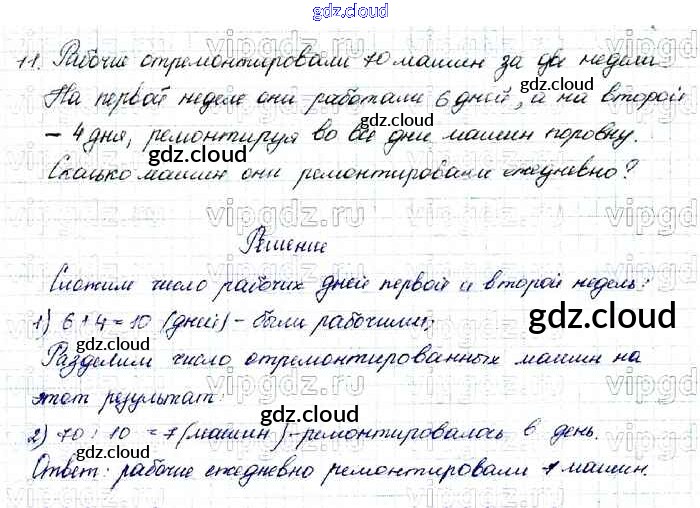 gdz.cloud
11. Рабочие отремонтировали 70 машин за две недели.
На первой неделе они работали 6 дней, а на второй
– 4 дня, ремонтируя во все дни машин поровну.
gdz.cloud
gdz.cloud
Сколько машин они ремонтировали ежедневно?
vipgdz.ru
Решение
Сложим число рабочих дней первой и второй недель:
1) 6+4=10 (дней) – были рабочими;
gdz.cloud
gdz.cloud
Разделим число отремонтированных машин на
этот результат:
gdz.cloud
gdz.cloud
2) 70 : 10 = 7 (машин) – ремонтировалось в день.
Ответ: рабочие ежедневно ремонтировали 7 машин.